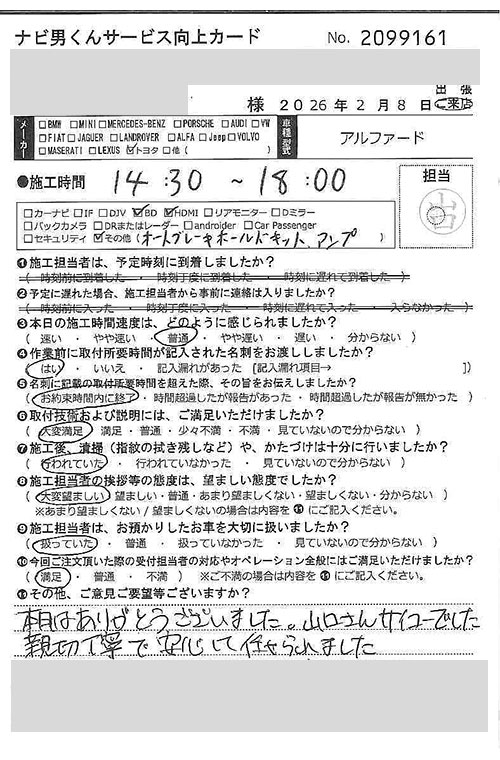 ナビ男くんサービス向上カード No. 2099161
様 2026年2月8日 出張・ご来店
メーカー □BMW □MINI □MERCEDES-BENZ □PORSCHE □AUDI □VW
□FIAT □JAGUER □LANDROVER □ALFA □Jeep □VOLVO
□MASERATI □LEXUS ☑トヨタ □他 ( )
車種型式 アルファード
●施工時間 14:30 ~ 18:00
担当
□カーナビ □IF □DJV ☑BD ☑HDMI □リアモニター □Dミラー
□バックカメラ □DRまたはレーダー □androider □Car Passenger
□セキュリティ ☑その他 (オートブレーキホールドキット、アンプ)
❶施工担当者は、予定時刻に到着しましたか?
( 時刻前に到着した ・ 時刻丁度に到着した ・ 時刻に遅れて到着した )
❷予定に遅れた場合、施工担当者から事前に連絡は入りましたか?
( 時刻前に入った ・ 時刻丁度に入った ・ 時刻に遅れて入った ・ 入らなかった )
❸本日の施工時間速度は、どのように感じられましたか?
( 速い ・ やや速い ・ 普通 ・ やや遅い ・ 遅い ・ 分からない )
❹作業前に取付所要時間が記入された名刺をお渡ししましたか?
( はい ・ いいえ ・ 記入漏れがあった [記入漏れ項目→ ])
❺名刺に記載の取付所要時間を超えた際、その旨をお伝えしましたか?
( お約束時間内に終了 ・ 時間超過したが報告があった ・ 時間超過したが報告が無かった )
❻取付技術および説明には、ご満足いただけましたか?
( 大変満足 ・ 満足 ・ 普通 ・ 少々不満 ・ 不満 ・ 見ていないので分からない )
❼施工後、清掃(指紋の拭き残しなど)や、かたづけは十分に行いましたか?
( 行われていた ・ 行われていなかった ・ 見ていないので分からない )
❽施工担当者の挨拶等の態度は、望ましい態度でしたか?
( 大変望ましい ・ 望ましい ・ 普通 ・ あまり望ましくない ・ 望ましくない ・ 分からない )
※あまり望ましくない / 望ましくないの場合は内容を ⓫ にご記入ください。
❾施工担当者は、お預かりしたお車を大切に扱いましたか?
( 扱っていた ・ 普通 ・ 扱っていなかった ・ 見ていないので分からない )
❿今回ご注文頂いた際の受付担当者の対応やオペレーション全般にはご満足いただけましたか?
( 満足 ・ 普通 ・ 不満 ) ※ご不満の場合は内容を ⓫ にご記入ください。
⓫その他、ご意見ご要望等ございますか?
本日はありがとうございました。山口さんサイコーでした
親切丁寧で安心して任せられました